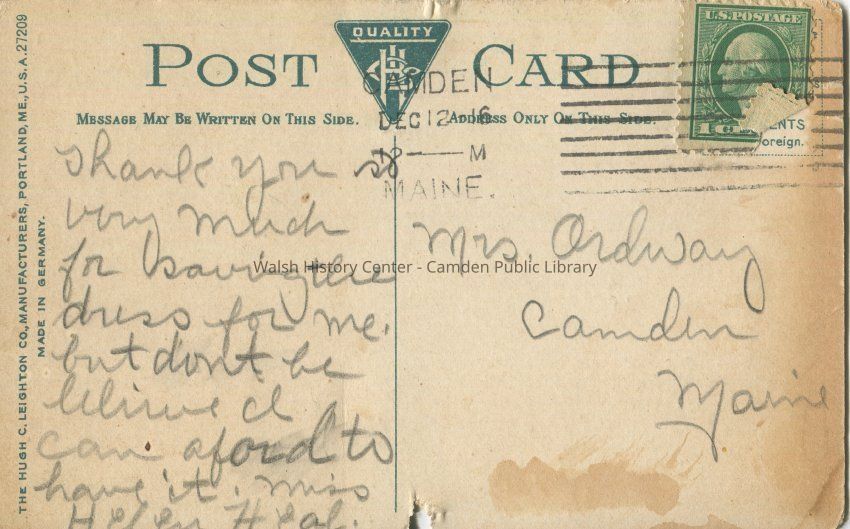 THE HUGH C. LEIGHTON CO., MANUFACTURERS, PORTLAND, ME., U.S.A. 27209
MADE IN GERMANY.
POST CARD
QUALITY
MESSAGE MAY BE WRITTEN ON THIS SIDE.
ADDRESS ONLY ON THIS SIDE.
U.S. POSTAGE
1 C
ENTS
oreign.
CAMDEN
DEC 12 16
12 — M
MAINE.
Thank you so
very much
for saving the
dress for me.
but dont be
believe I
can aford to
have it. Miss
Helen Heal.
Mrs. Ordway
Camden
Maine
Walsh History Center - Camden Public Library